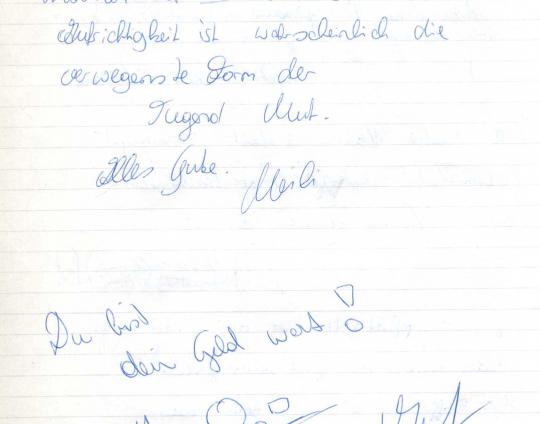 Aufrichtigkeit ist wahrscheinlich die
verwegenste Form der
Tugend Mut.
Alles Gute.
Du bist
dein Geld wert!